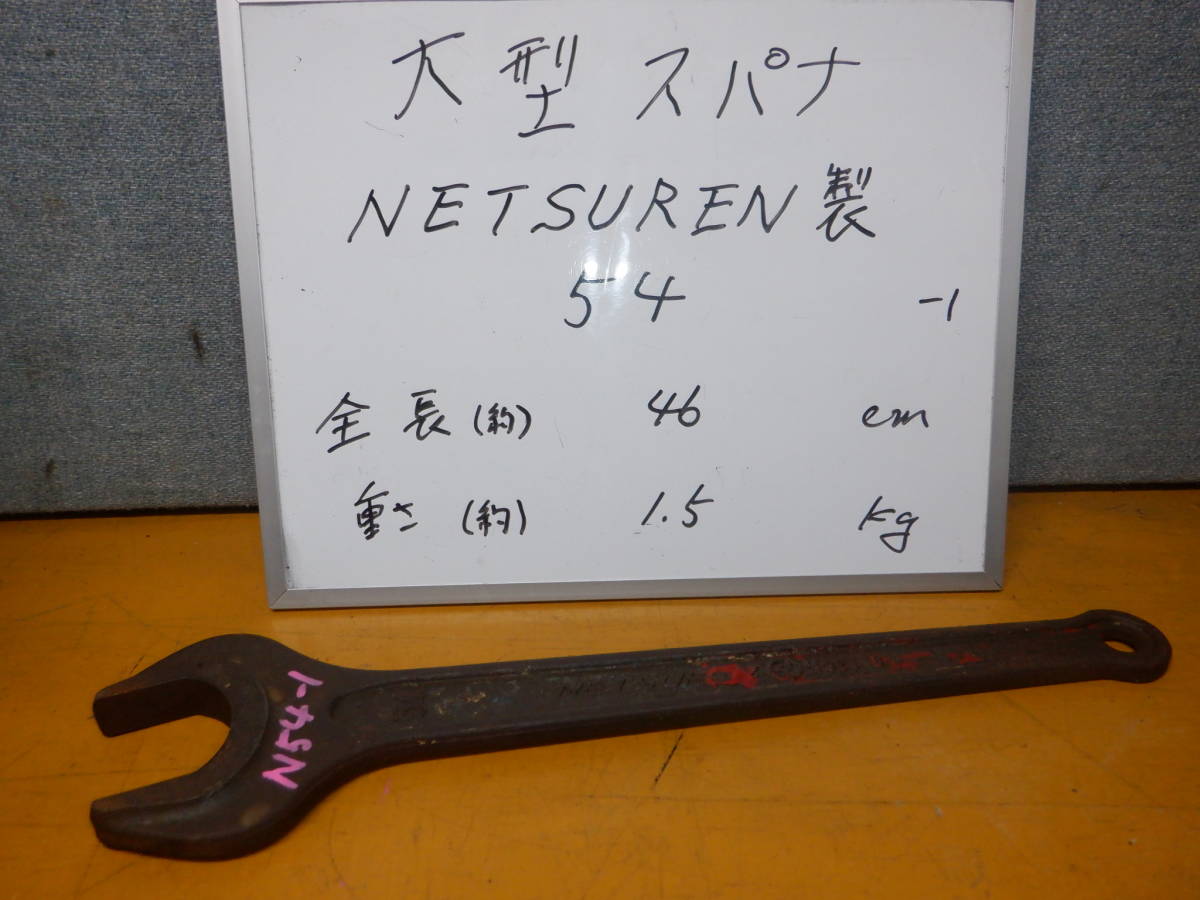 大型スパナ
NETSUREN製
54 -1
全長(約) 46 cm
重さ(約) 1.5 kg
N54-1